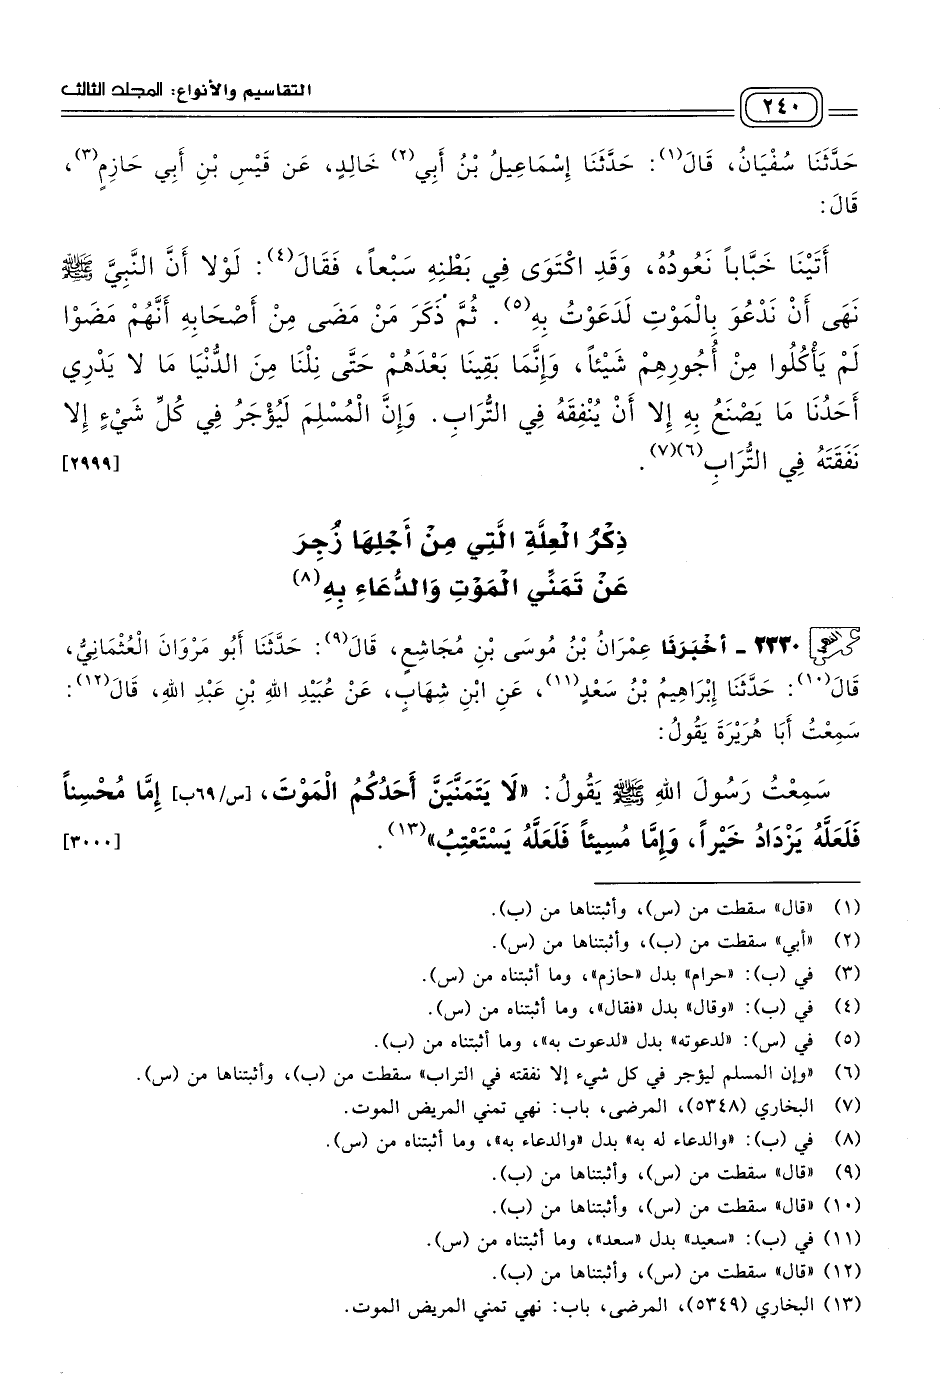 التقاسيم والأنواع: المجلد الثالث
٢٤٠
حَدَّثَنَا سُفْيَانُ، قَالَ(١): حَدَّثَنَا إِسْمَاعِيلُ بْنُ أَبِي(٢) خَالِدٍ، عَن قَيْسِ بْنِ أَبِي حَازِمٍ(٣)،
قَالَ:
أَتَيْنَا خَبَّاباً نَعُودُهُ، وَقَدِ اكْتَوَى فِي بَطْنِهِ سَبْعاً، فَقَالَ(٤): لَوْلا أَنَّ النَّبِيَّ ﷺ
نَهَى أَنْ نَدْعُوَ بِالْمَوْتِ لَدَعَوْتُ بِهِ(٥). ثُمَّ ذَكَرَ مَنْ مَضَى مِنْ أَصْحَابِهِ أَنَّهُمْ مَضَوْا
لَمْ يَأْكُلُوا مِنْ أُجُورِهِمْ شَيْئاً، وَإِنَّمَا بَقِينَا بَعْدَهُمْ حَتَّى نِلْنَا مِنَ الدُّنْيَا مَا لا يَدْرِي
أَحَدُنَا مَا يَصْنَعُ بِهِ إِلا أَنْ يُنْفِقَهُ فِي التُّرَابِ. وَإِنَّ الْمُسْلِمَ لَيُؤْجَرُ فِي كُلِّ شَيْءٍ إِلا
نَفَقَتَهُ فِي التُّرَابِ(٦)(٧). [٢٩٩٩]
ذِكْرُ الْعِلَّةِ الَّتِي مِنْ أَجْلِهَا زُجِرَ
عَنْ تَمَنِّي الْمَوْتِ وَالدُّعَاءِ بِهِ(٨)
٢٣٣٠ - أخْبَرَنَا عِمْرَانُ بْنُ مُوسَى بْنِ مُجَاشِعٍ، قَالَ(٩): حَدَّثَنَا أَبُو مَرْوَانَ الْعُثْمَانِيُّ،
قَالَ(١٠): حَدَّثَنَا إِبْرَاهِيمُ بْنُ سَعْدٍ(١١)، عَنِ ابْنِ شِهَابٍ، عَنْ عُبَيْدِ اللهِ بْنِ عَبْدِ اللهِ، قَالَ(١٢):
سَمِعْتُ أَبَا هُرَيْرَةَ يَقُولُ:
سَمِعْتُ رَسُولَ اللهِ ﷺ يَقُولُ: «لَا يَتَمَنَّيَنَّ أَحَدُكُمُ الْمَوْتَ، [س/٦٩ب] إِمَّا مُحْسِناً
فَلَعَلَّهُ يَزْدَادُ خَيْراً، وَإِمَّا مُسِيئاً فَلَعَلَّهُ يَسْتَعْتِبُ»(١٣). [٣٠٠٠]
(١) «قال» سقطت من (س)، وأثبتناها من (ب).
(٢) «أبي» سقطت من (ب)، وأثبتناها من (س).
(٣) في (ب): «حرام» بدل «حازم»، وما أثبتناه من (س).
(٤) في (ب): «وقال» بدل «فقال»، وما أثبتناه من (س).
(٥) في (س): «لدعوته» بدل «لدعوت به»، وما أثبتناه من (ب).
(٦) «وإن المسلم ليؤجر في كل شيء إلا نفقته في التراب» سقطت من (ب)، وأثبتناها من (س).
(٧) البخاري (٥٣٤٨)، المرضى، باب: نهي تمني المريض الموت.
(٨) في (ب): «والدعاء له به» بدل «والدعاء به»، وما أثبتناه من (س).
(٩) «قال» سقطت من (س)، وأثبتناها من (ب).
(١٠) «قال» سقطت من (س)، وأثبتناها من (ب).
(١١) في (ب): «سعيد» بدل «سعد»، وما أثبتناه من (س).
(١٢) «قال» سقطت من (س)، وأثبتناها من (ب).
(١٣) البخاري (٥٣٤٩)، المرضى، باب: نهي تمني المريض الموت.